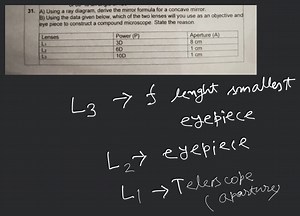 31. A) Using a ray diagram, derive the mirror formula for a concave mirror.
B) Using the data given below, which of the two lenses will you use as an objective and
eye piece to construct a compound microscope. State the reason
Lenses Power (P) Aperture (A)
L₁ 3D 8 cm
L₂ 6D 1 cm
L₃ 10D 1 cm
L₃ → f lenght smallest
eyepiece
L₂ → eyepiece
L₁ → Telescope
(aparture)